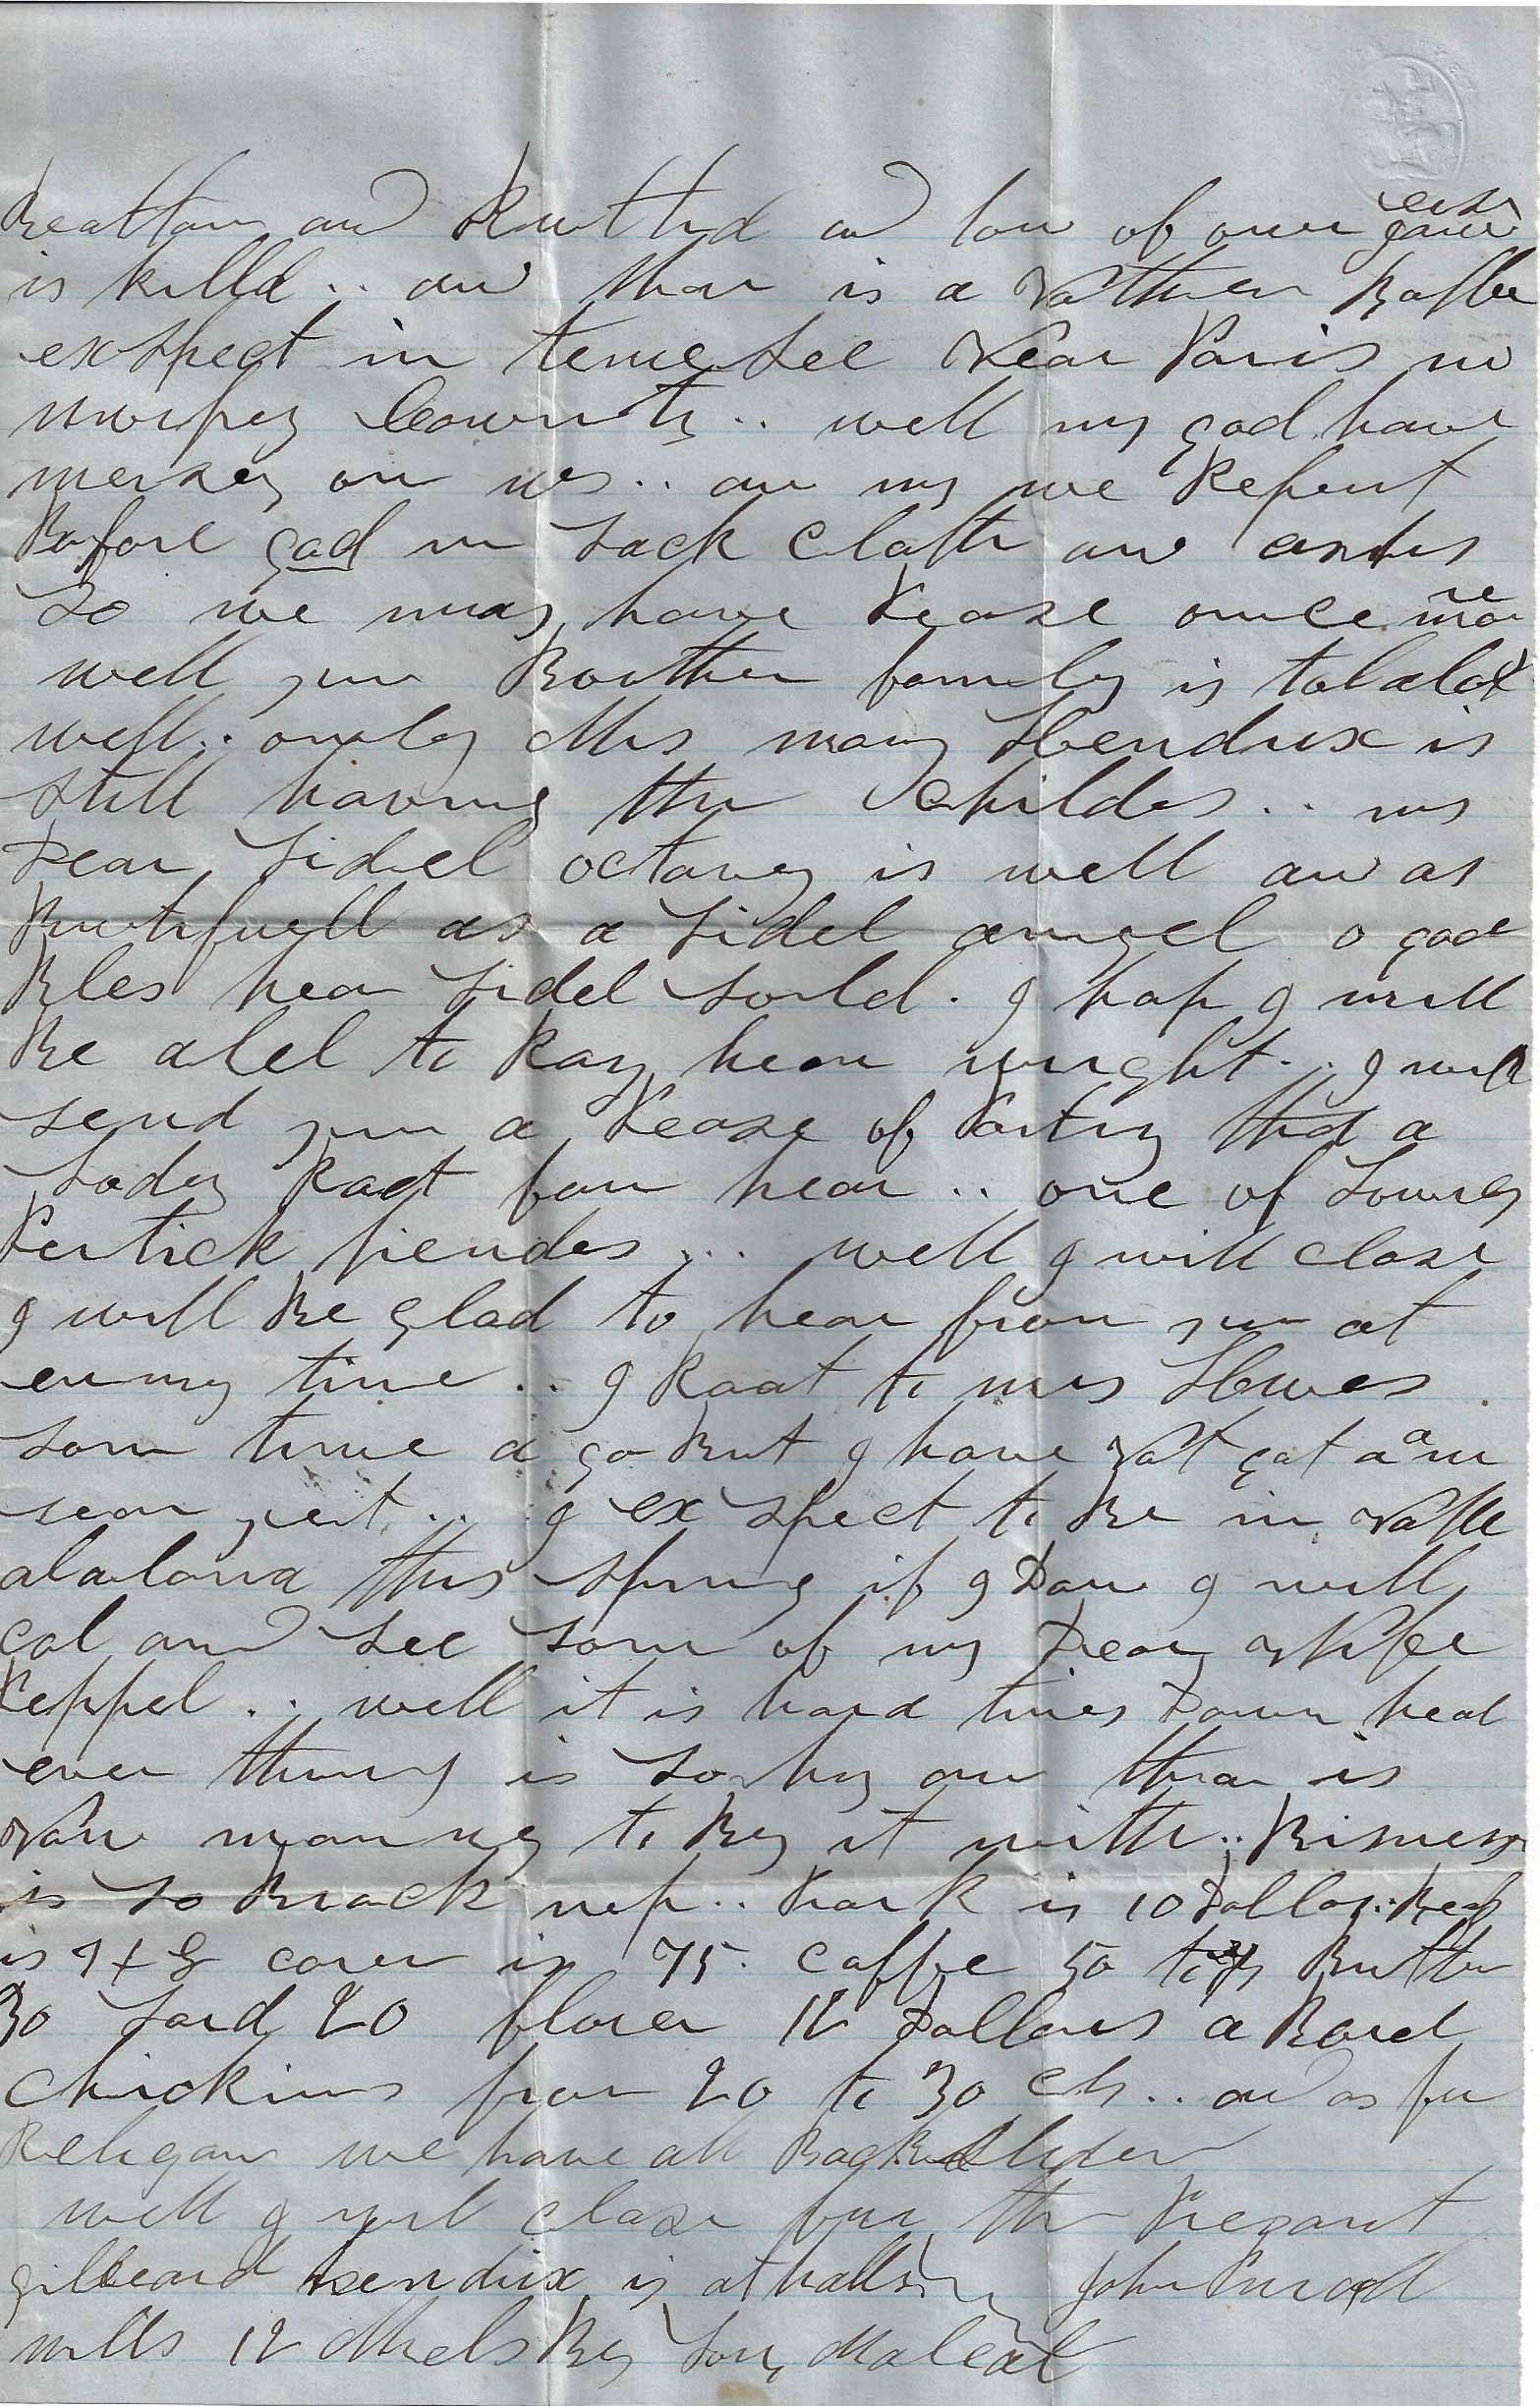 Beatten and Rautted and low of ouer
is killd .. and thar is a Nother Battle
exspect in tennesee Near Paris in
murfrey Cownty .. well my god have
mersey on us .. an my we Repent
Before god in sack Cloth and ashes
So we may have Pease once more
well your Brother family is tolalal
well .. onley Mrs mary Hendrix is
still having the Childes .. my
Dear Lidel octavey is well and as
Buetifuell as a Lidel angel o god
Bles hear Lidel sould . I hop I will
Be abel to Ray hear wright .. I will
send you a Pease of Portry that a
Lady Raot for hear .. one of Lowrey
Pertick friendes ... well I will close
I will Be glad to hear from you at
enny time .. I Raot to mrs Howes
som time a go But I have Not got an
sear yeit .. I exspect to Be in North
alabama this spring if I Dow I will
cal and see som of my Dear
Peppel .. well it is hard times Down hear
ever thing is so hy an thear is
Now monney to By it with .. Bisness
is so Brock up .. Pork is 10 Dollars. Beef
is 7 + 8 coren is 75. Caffee 50 Butter
30 Lard 20 flouer 12 Dollars a Barel
Chickins from 20 to 30 cts .. and as for
Religon we have all Backslider
well I will close for the Presant
gilbeard hendrix is at halls John Purcell
mills 12 Miels By Low